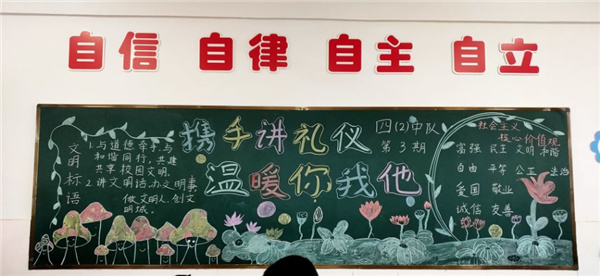 自信 自律 自主 自立
文明标语
1.与道德牵手,与
和谐同行,共建
共享校园文明.
2.讲文明话,办文明事
做文明人,创文
明城.
携手讲礼仪
温暖你我他
四(2)中队
第3期
社会主义
核心价值观
富强 民主 文明 和谐
自由 平等 公正 法治
爱国 敬业
诚信 友善